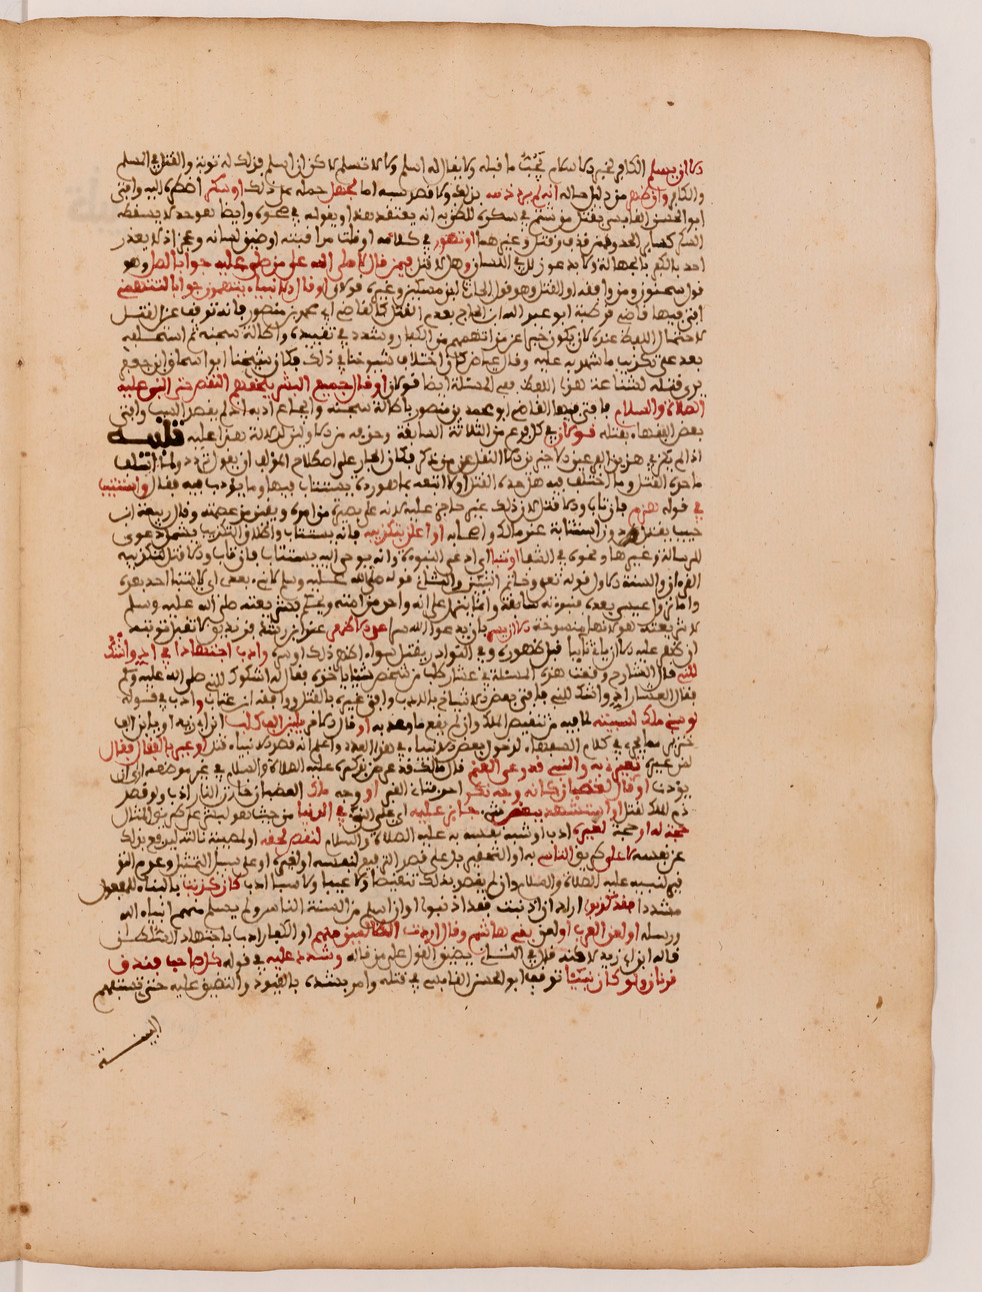 الا ان يسلم الكافر لخبر الاسلام يجب ما قبله ولا يقال له اسلم ولا لا تسلم لاكن ان اسلم فذلك له توبة والقتل في المسلم
والكافر وان ظهر من دليل حاله انه لم يرد ذمه بذلك ولا قصد سبه اما لجهل حمله على ذلك او سكر اضطره اليه وافتى
ابو الحسن القابسي بقتل من شتم في سكره للظن به انه يعتقد هذا ويقوله في صحوه وايضا فهو حد لا يسقطه
السكر كسائر الحدود من قذف وقتل وغيرهما او تهور في كلامه او قلت مراقبته او ضبط لسانه وعجر اذ لا يعذر
احد بالكفر بالجهالة ولا بدعوى زلل اللسان وهل لا قتل فيمن قال لا صلى الله على من صلى عليه جوابا لصل وهو
قول سحنون ومن وافقه او القتل وهو قول الحارث بن مسكين وغيره قولان او قال الانبياء يتهمون جوابا لتتهمني
افتى فيها قاضي قرطبة ابو عبد الله ابن الحاج بعدم القتل كالقاضي ابي محمد بن منصور فانه توقف عن القتل
لاحتمال اللفظ عنده ان يكون خبرا عن من اتهمهم من الكفار وشدد في تقييده واطالة سجنه ثم استحلفه
بعد على تكذيب ما شهد به عليه وقال عياض كان اختلاف شيوخنا في ذلك فكان شيخنا ابو اسحاق ابن جعفر
يرى قتله لشناعة هذا اللفظ ففي المسئلة ايضا قولان او قال جميع البشر يلحقهم النقص حتى النبي عليه
الصلاة والسلام فافتى فيها القاضي ابو محمد بن منصور باطالة سجنه وايجاع ادبه اذ لم يقصد السب وافتى
بعض الفقهاء بقتله قولان في كل فرع من الثلاثة السابقة وحذفه من الاولين لدلالة هذا عليه تنبيه
اذا لم يكن في هذين الفرعين الاخيرين الا النقل عن من ذكر فكان الجاري على اصطلاح المؤلف ان يقول تردد ولما اسلف
ما حده القتل وما اختلف فيه هل حده القتل او لا اتبعه بما هو ردة يستتاب فيها وما يودب فيه فقال واستتيب
في قوله هزم فان تاب والا قتل لان ذلك غير جائز عليه لانه على بصيرة من امره ويقين من عصمته وقال ربيعة ابن
حبيب يقتل دون استتابة عند مالك واصحابه او اعلن بتكذيبه فانه يستتاب واطلاق التكذيب يشمل دعوى
للرسالة وغيرها ونحوه في الشفا او تنبا اي ادعى النبوة وانه يوحى اليه يستتاب فان تاب والا قتل لتكذيبه
القرءان والسنة الاول قوله تعلى وخاتم النبيين والثاني قوله صلى الله عليه وسلم لا نبي بعدي اي لا يتنبا احد بعدي
واما نزول عيسى بعده فنبوته سابقة واذا نزل على انه واحد من امته ويحكم بشريعته صلى الله عليه وسلم
لا شريعته هو لانها منسوخة الا ان يسر بان يدعو الله سرا على الاظهر عند ابن رشد فزنديق لا تقبل توبته
ان ظهر عليه الا ان ياتي تائبا قبل ظهوره وفي النوادر يقتل سواء اظهر ذلك او سره وادب اجتهادا في اد واشك
للنبي قال الشارح وقعت هذه المسئلة في عشار طلب من شخص شيئا ياخذه فقال له اشكوك للنبي صلى الله عليه وسلم
فقال العشار اد واشك للنبي فافتى بعض الاشياخ بالادب وافتى غيره بالقتل ووافقه ابن عتاب وادب في قوله
لو سبني ملك لسببته لما فيه من تنقيص الملك وان لم يقع ما وعد به او قال لاخر يا ابن الف كلب
خنزير مما يجري في كلام السفهاء لدخول بعض الانبياء في هذا العدد واعلم انه قصد الانبياء قتل او عير بالفقر فقال
لمن عيره تعيرني به والنبي قد رعى الغنم قال مالك قد عرض بذكره عليه الصلاة والسلام في غير موضعه ارى ان
يودب او قال لغضبان كانه وجه منكر احد فتاني القبر او وجه ملك الغضبان خازن النار ادب ولو قصد
ذم الملك لقتل او استشهد ببعض شيء جائز عليه اي على النبي في الدنيا من حيث هو ليس على طريق المثال
حجة له او حجة لغيره ادب او شبه نفسه به عليه الصلاة والسلام لنقص لحقه او لمصيبة نالته ليرفع بذلك
عن نفسه لا على طريق التاسي به او التحقيم بل على قصد الترفيع لنفسه او لغيره او على سبيل التمثيل وعدم التو
قير لنبيه عليه الصلاة والسلام وان لم يقصد بذلك تنقيصا ولا عيبا ولا سبا ادب كان كذبت بالبناء للمفعول
مشددا فقد كذبوا اراد ان اذنبت فقد اذنبوا او ان اسلم من السنة الناس ولم يسلم منهم انبياء الله
ورسله او لعن العرب او لعن بني هاشم وقال اردت الظالمين منهم او الكفار ادب باجتهاد السلطان
قاله ابن ابي زيد لا قتله قال في الشفا يضيق القول على من قاله وشدد عليه في قوله كل صاحب فندق
قرنان ولو كان نبيا توقف ابو الحسن القابسي في قتله وامر بشده بالقيود والتضييق عليه حتى تستفهم
البينة